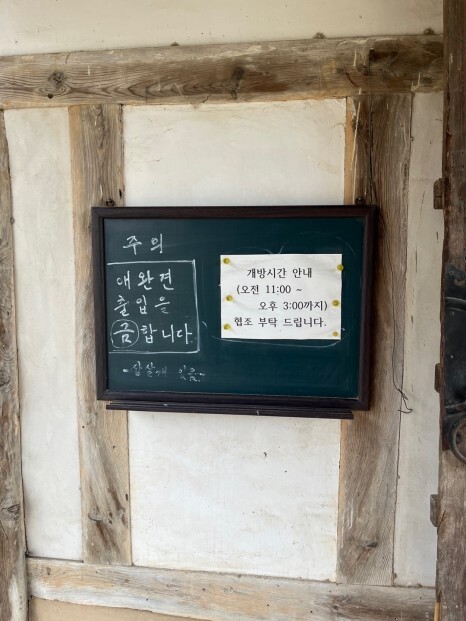 주의
애완견
출입을
금합니다.
-삽살개 있음-
개방시간 안내
(오전 11:00 ~
오후 3:00까지)
협조 부탁 드립니다.